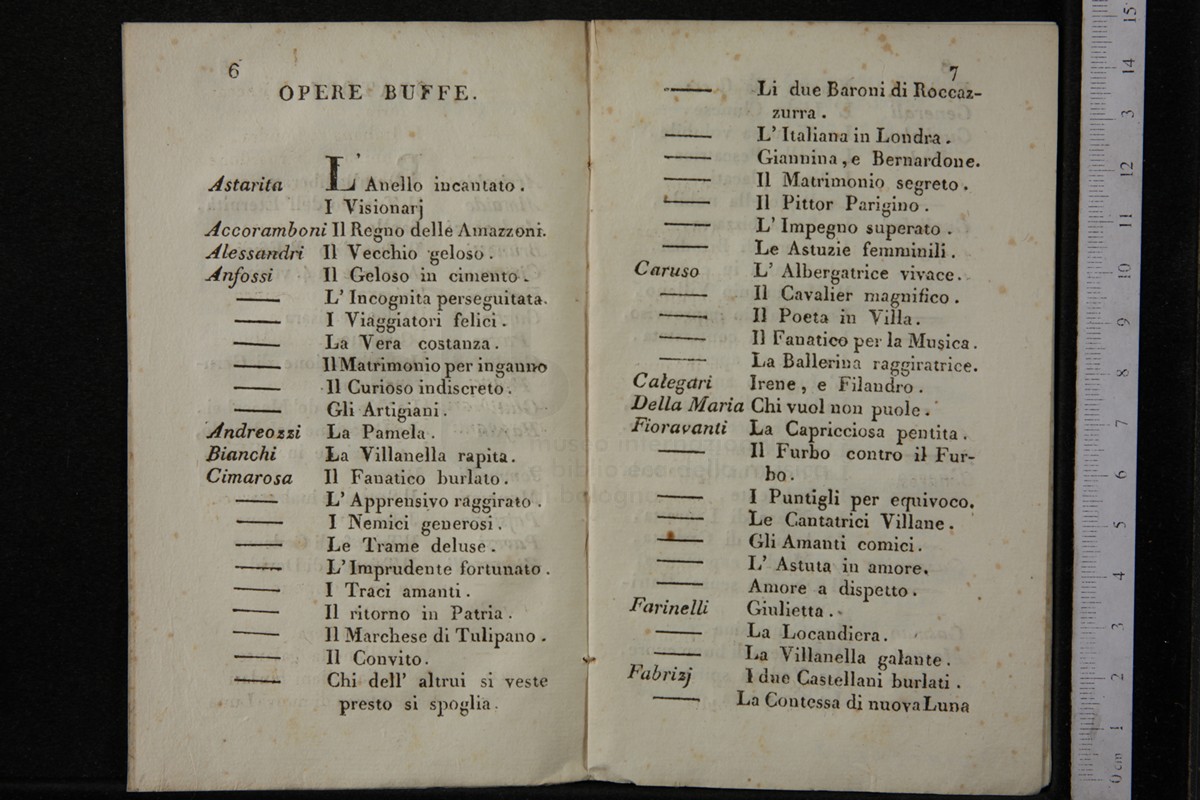 6
OPERE BUFFE.
Astarita L' Anello incantato.
I Visionarj
Accoramboni Il Regno delle Amazzoni.
Alessandri Il Vecchio geloso.
Anfossi Il Geloso in cimento.
—— L' Incognita perseguitata.
—— I Viaggiatori felici.
—— La Vera costanza.
—— Il Matrimonio per inganno
—— Il Curioso indiscreto.
—— Gli Artigiani.
Andreozzi La Pamela.
Bianchi La Villanella rapita.
Cimarosa Il Fanatico burlato.
—— L' Apprensivo raggirato.
—— I Nemici generosi.
—— Le Trame deluse.
—— L' Imprudente fortunato.
—— I Traci amanti.
—— Il ritorno in Patria.
—— Il Marchese di Tulipano.
—— Il Convito.
—— Chi dell' altrui si veste
presto si spoglia.
7
—— Li due Baroni di Roccaz-
zurra.
—— L' Italiana in Londra.
—— Giannina, e Bernardone.
—— Il Matrimonio segreto.
—— Il Pittor Parigino.
—— L' Impegno superato.
—— Le Astuzie femminili.
Caruso L' Albergatrice vivace.
—— Il Cavalier magnifico.
—— Il Poeta in Villa.
—— Il Fanatico per la Musica.
—— La Ballerina raggiratrice.
Calegari Irene, e Filandro.
Della Maria Chi vuol non puole.
Fioravanti La Capricciosa pentita.
—— Il Furbo contro il Fur-
bo.
—— I Puntigli per equivoco.
—— Le Cantatrici Villane.
—— Gli Amanti comici.
—— L' Astuta in amore.
—— Amore a dispetto.
Farinelli Giulietta.
—— La Locandiera.
—— La Villanella galante.
Fabrizj I due Castellani burlati.
—— La Contessa di nuova Luna
0 cm 1 2 3 4 5 6 7 8 9 10 11 12 13 14 15